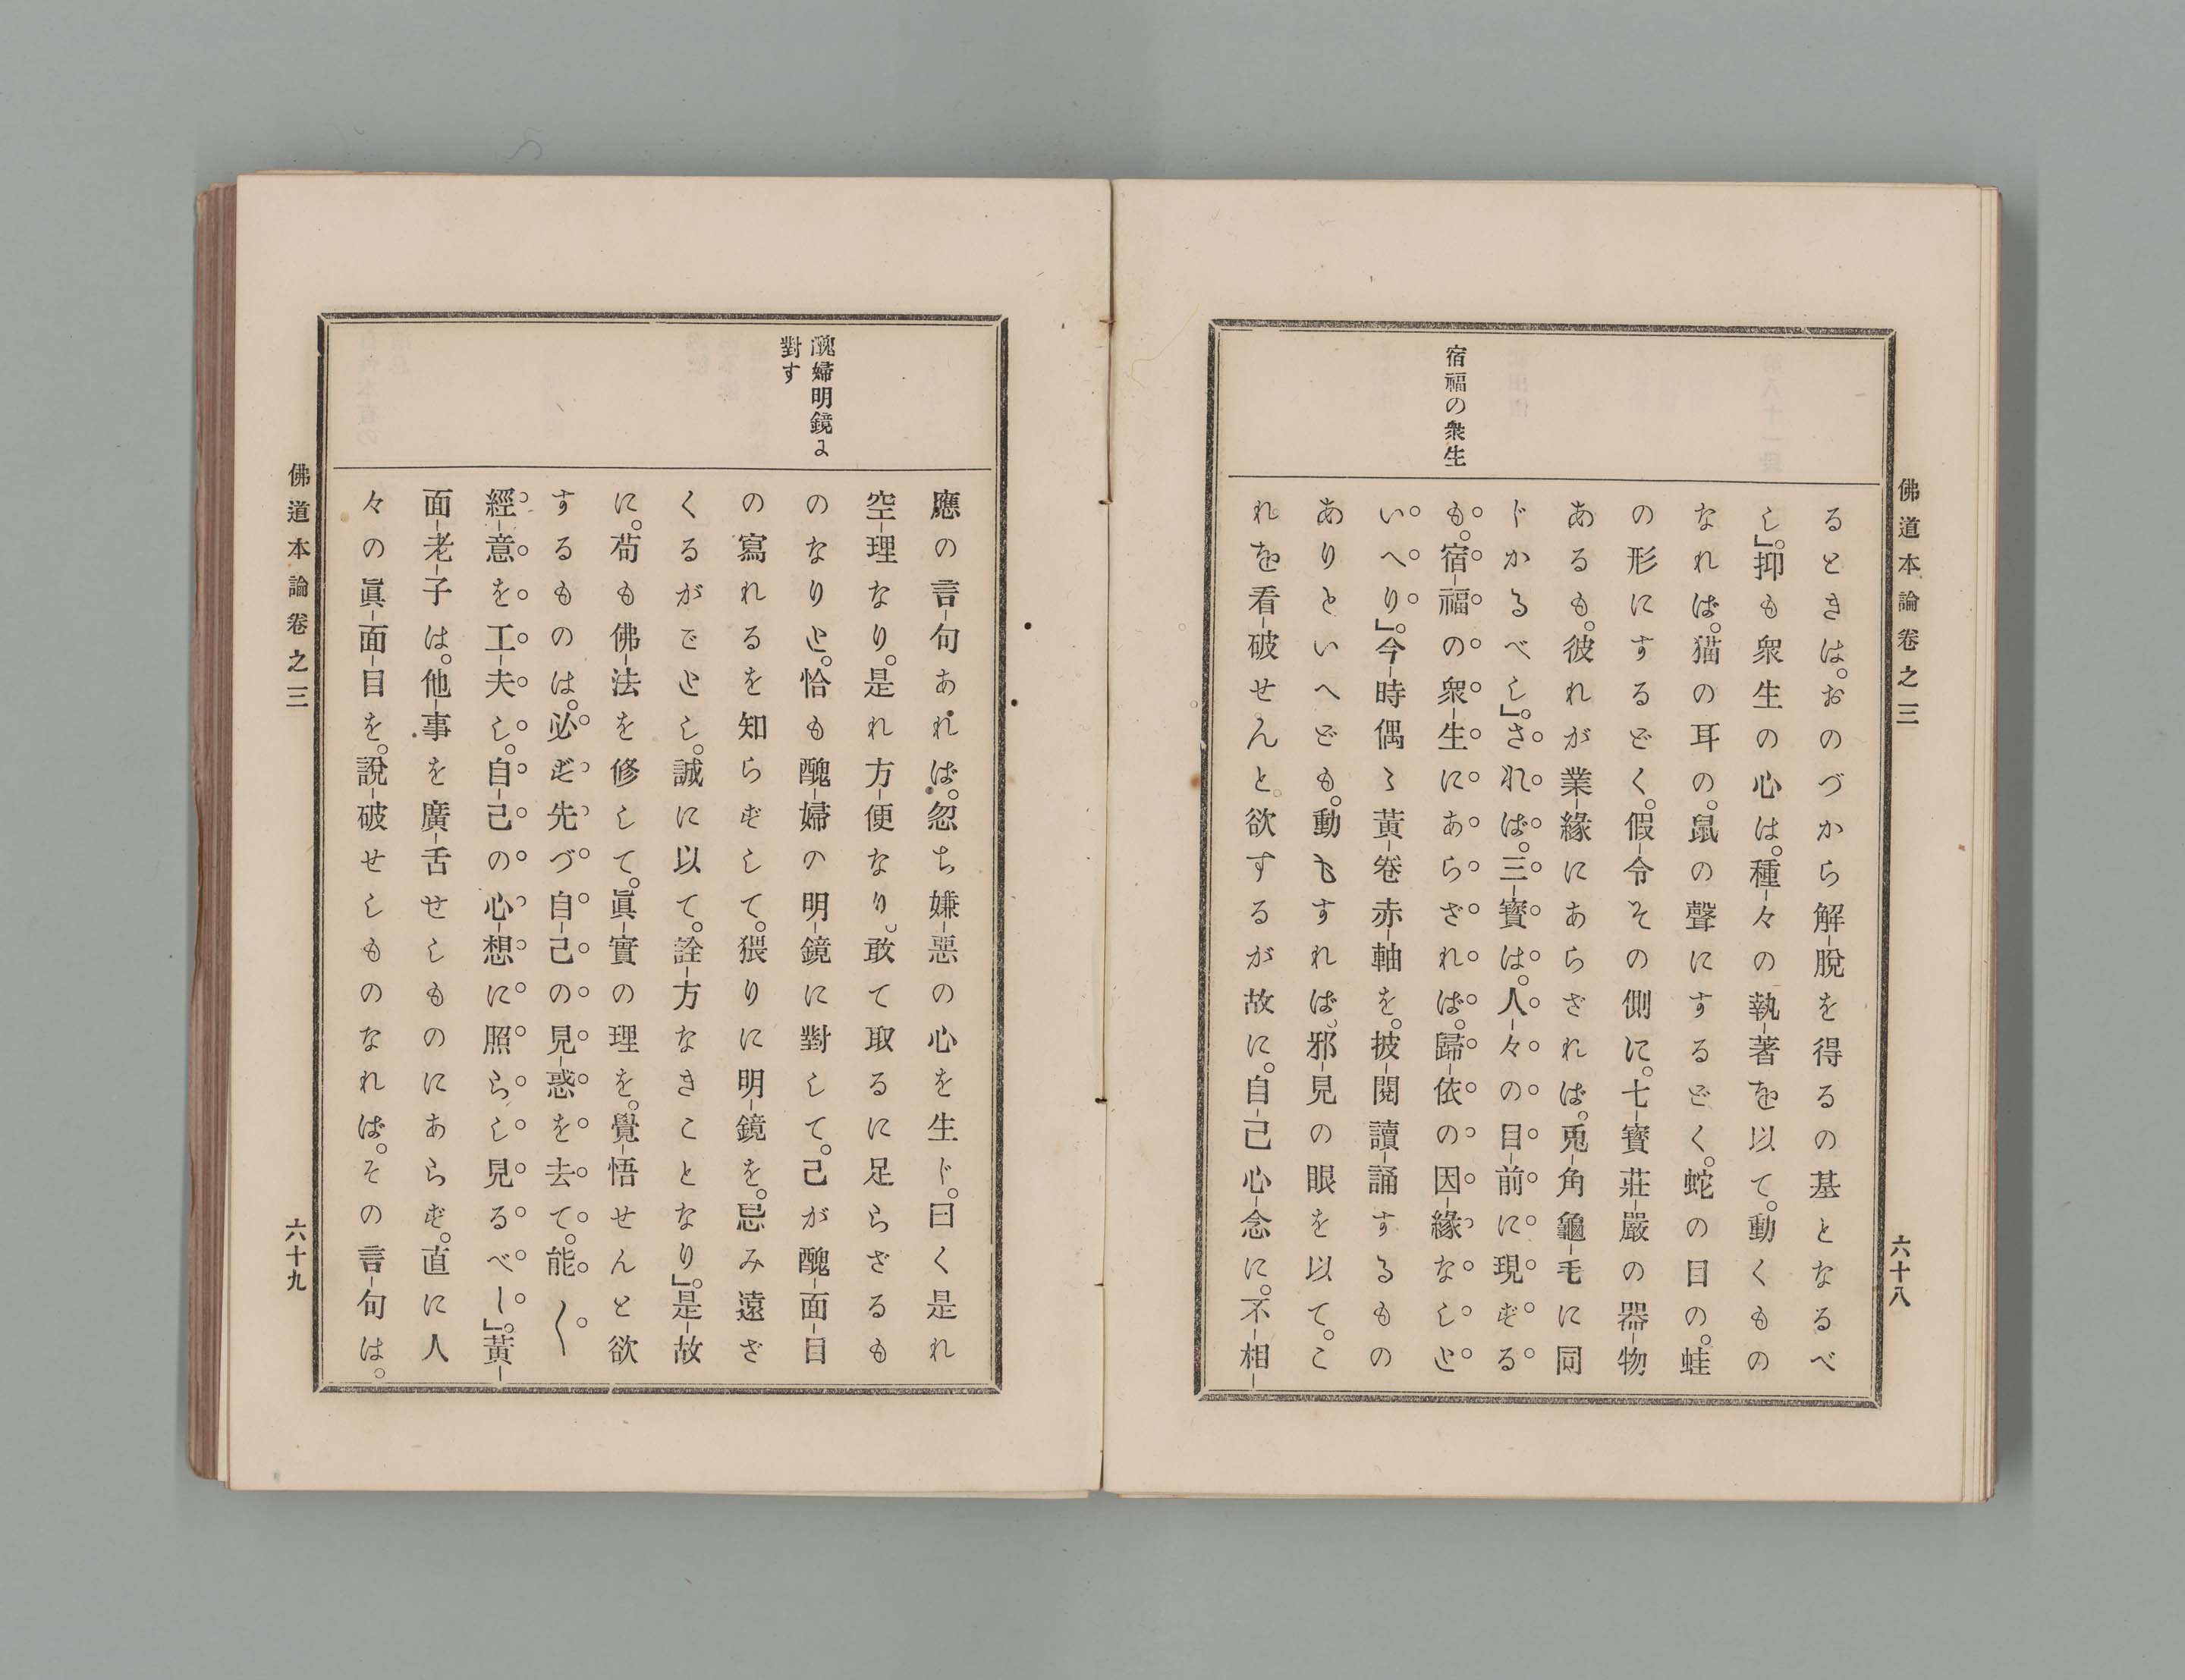 佛道本論卷之三
六十八
宿福の衆生
るときは。おのづから解脫を得るの基となるべ
し。」抑も衆生の心は。種々の執著を以て。動くもの
なれば。猫の耳の。鼠の聲にするどく。蛇の目の。蛙
の形にするどく。假令その側に。七寶莊嚴の器物
あるも。彼れが業緣にあらざれは。兎角龜毛に同
じかるべし。」されば。三寶は。人々の目前に現ずる
も。宿福の衆生にあらざれば。歸依の因緣なしと
いへり。」今時偶々黃卷赤軸を。披閱讀誦するもの
ありといへども。動もすれば。邪見の眼を以て。こ
れを看破せんと。欲するが故に。自己心念に。不相
醜婦明鏡に
對す
應の言句あれば。忽ち嫌惡の心を生ず。曰く是れ
空理なり。是れ方便なり。敢て取るに足らざるも
のなりと。恰も醜婦の明鏡に對して。己が醜面目
の寫れるを知らずして。猥りに明鏡を。忌み遠ざ
くるがごとし。誠に以て。詮方なきことなり。」是故
に。苟も佛法を修して。眞實の理を。覺悟せんと欲
するものは。必ず先づ自己の見惑を去て。能〱
經意を工夫し。自己の心想に照らし見るべし。」黃
面老子は。他事を廣舌せしものにあらず。直に人
々の眞面目を。說破せしものなれば。その言句は。
佛道本論卷之三
六十九